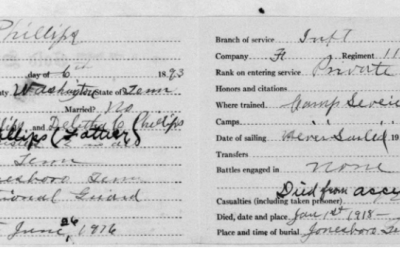 Phillips
day of 6th 1893
Washington State of Tenn
Married? No
and Phillips
Phillips (Father)
Tenn
Jonesboro Tenn
National Guard
June 26 1916
Branch of service Inft
Company H Regiment 11
Rank on entering service Private
Honors and citations
Where trained. Camp Sevier
Camps.
Date of sailing Never Sailed 19
Transfers
Battles engaged in None
Died from
Casualties (including taken prisoner)
Died, date and place Jan 1st 1918-
Place and time of burial Jonesboro Te